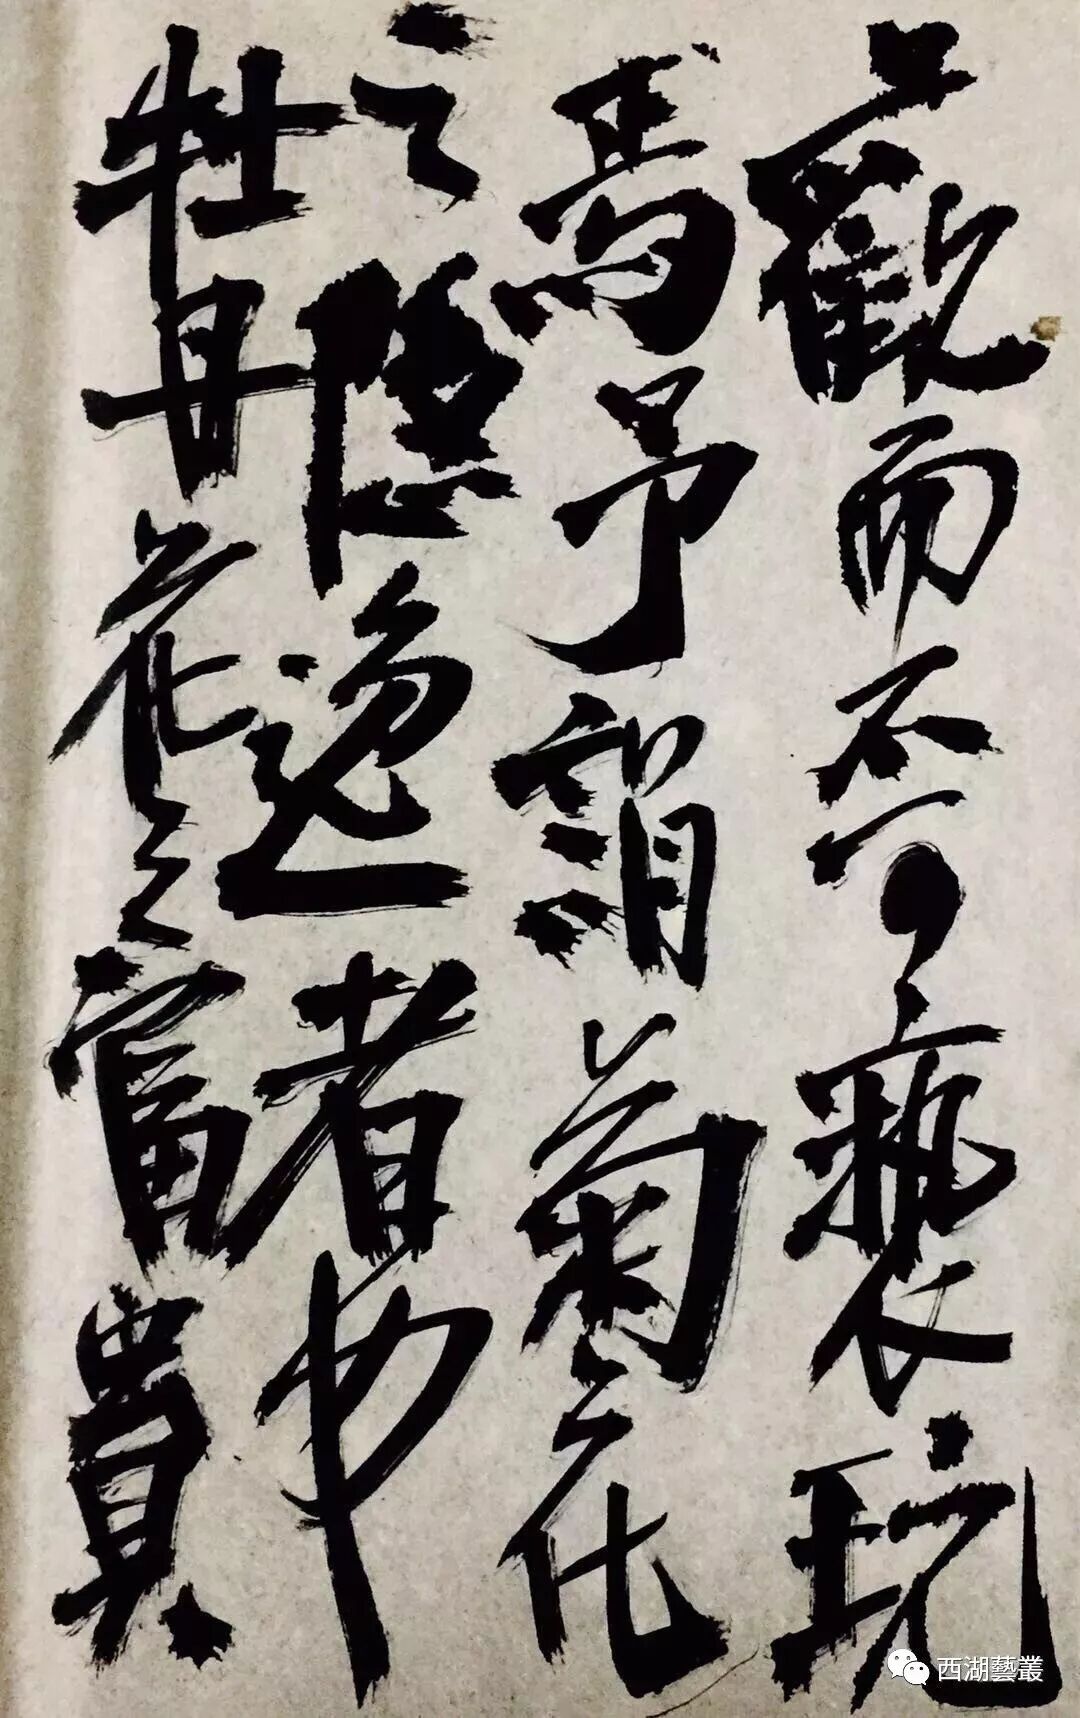 觀而不可褻玩
焉予謂菊花
之隱逸者也
牡丹花之富貴
西湖藝叢